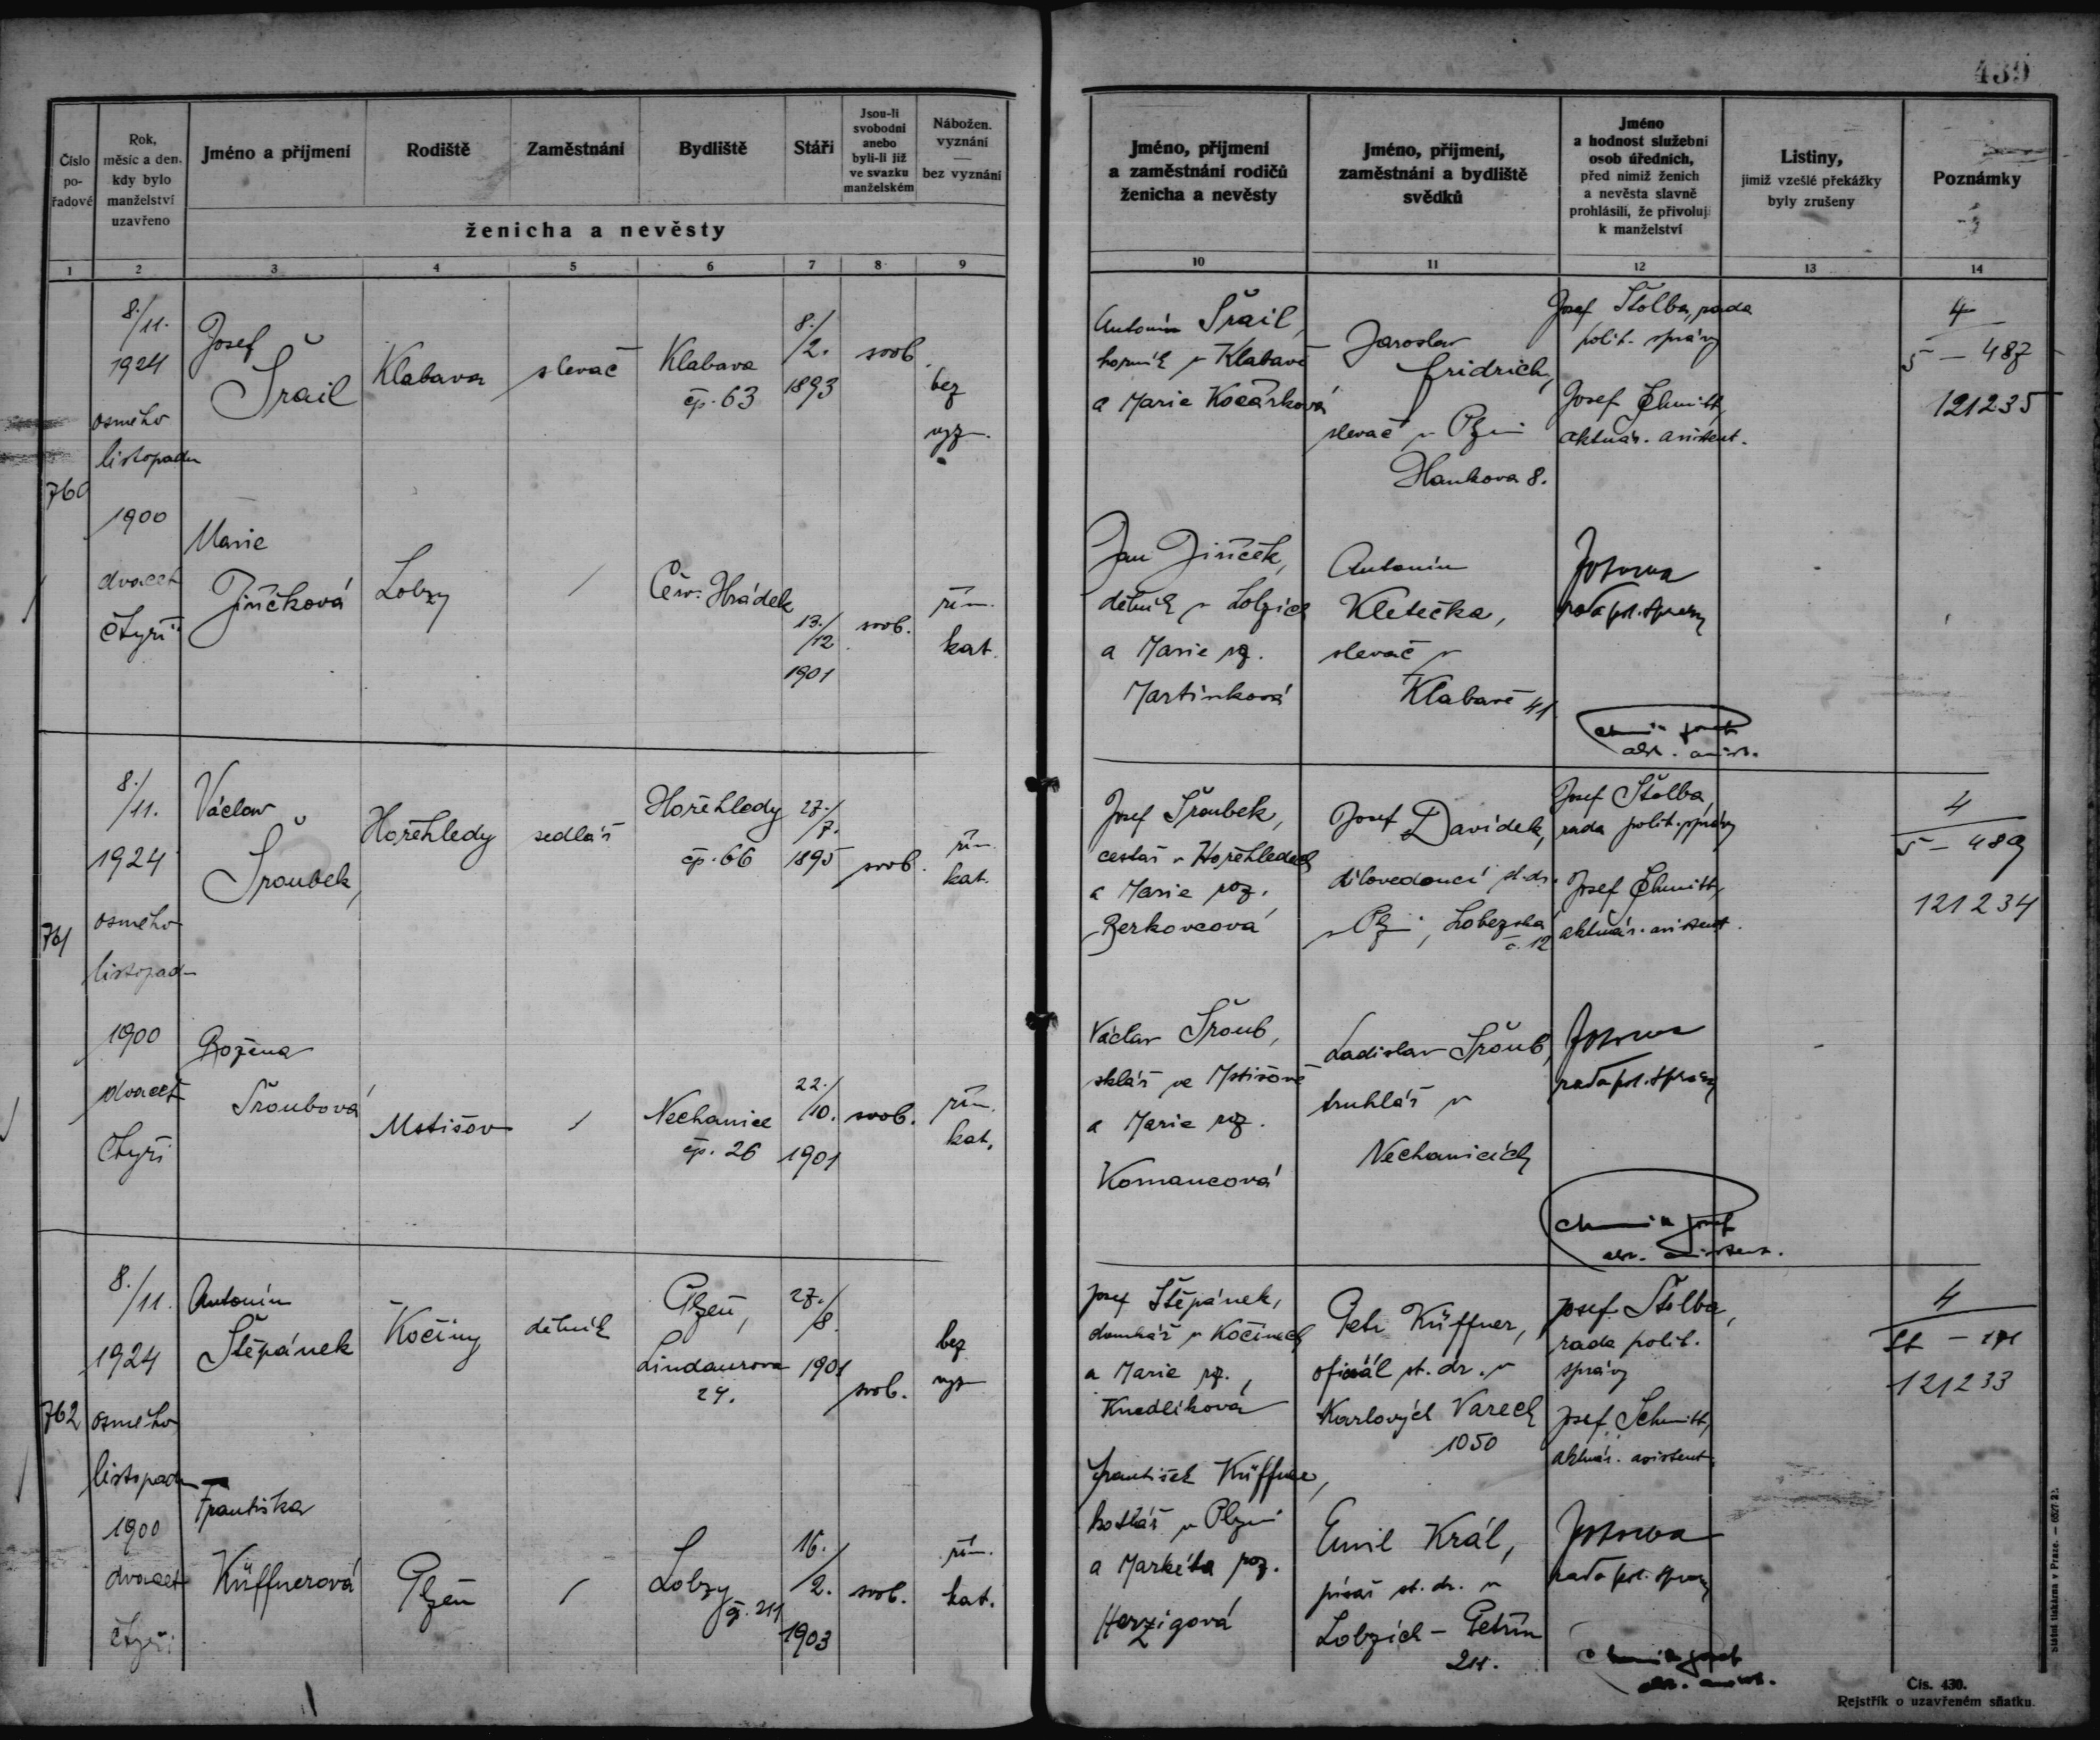 439
Číslo
po-
řadové
Rok,
měsíc a den,
kdy bylo
manželství
uzavřeno
Jméno a příjmení
Rodiště
Zaměstnání
Bydliště
Stáří
Jsou-li
svobodni
anebo
byli-li již
ve svazku
manželském
Nábožen.
vyznání
—
bez vyznání
ženicha a nevěsty
1 2 3 4 5 6 7 8 9
Jméno, příjmení
a zaměstnání rodičů
ženicha a nevěsty
Jméno, příjmení,
zaměstnání a bydliště
svědků
Jméno
a hodnost služební
osob úředních,
před nimiž ženich
a nevěsta slavně
prohlásili, že přivolují
k manželství
Listiny,
jimiž vzešlé překážky
byly zrušeny
Poznámky
10 11 12 13 14
760
8./11.
1924
osmého
listopadu
1900
dvacet
čtyři
Josef
Šrail
Klabava
slevač
Klabava
čp. 63
8./2.
1893
svob.
bez
vyz.
Antonín Šrail,
horník v Klabavě
a Marie Kočárková
Jaroslav
Fridrich,
slevač v Plzni
Hankova 8.
Josef Štolba, rada
polit. správy
Josef Schmitt,
aktuár. asistent.
4
5 – 487
121235
Marie
Jiříčková
Lobzy
/
Červ. Hrádek
13./12.
1901
svob.
řím.
kat.
Jan Jiříček,
dělník v Lobzích
a Marie rz.
Martínková
Antonín
Kletečka,
slevač v
Klabavě 41
rada pol. správy
761
8./11.
1924
osmého
listopad
1900
dvacet
čtyři
Václav
Šroubek,
Hořehledy
sedlář
Hořehledy
čp. 66
27./7.
1895
svob.
řím.
kat.
Josef Šroubek,
cestář v Hořehledech
a Marie roz.
Berkovcová
Josef Davídek,
dílovedoucí st. dr.
v Plzni, Lobezská
č. 12
Josef Štolba,
rada polit. správy
Josef Schmitt,
aktuár. asistent.
4
5 – 489
121234
Božena
Šroubová
Mstišov
/
Nechanice
čp. 26
22./10.
1901
svob.
řím.
kat.
Václav Šroub,
sklář ve Mstišově
a Marie roz.
Komancová
Ladislav Šroub,
truhlář v
Nechanicích
rada pol. správy
762
8./11.
1924
osmého
listopadu
1900
dvacet
čtyři
Antonín
Štěpánek
Kočiny
dělník
Plzeň,
Lindaurova
24.
27./8.
1901
svob.
bez
vyz
Josef Štěpánek,
domkář v Kočinech
a Marie rz.,
Knedlíková
Petr Küffner,
oficiál st. dr. v
Karlových Varech
1050
Josef Štolba,
rada polit.
správy
Josef Schmitt,
aktuár. asistent
4
121233
Františka
Küffnerová
Plzeň
/
Lobzy
čp. 211
16./2.
1903
svob.
řím.
kat.
František Küffner,
kotlář v Plzni
a Markéta roz.
Herzigová
Emil Král,
písař st. dr. v
Lobzích – Petřín
211.
rada pol. správy
Čís. 430.
Rejstřík o uzavřeném sňatku.
Státní tiskárna v Praze.